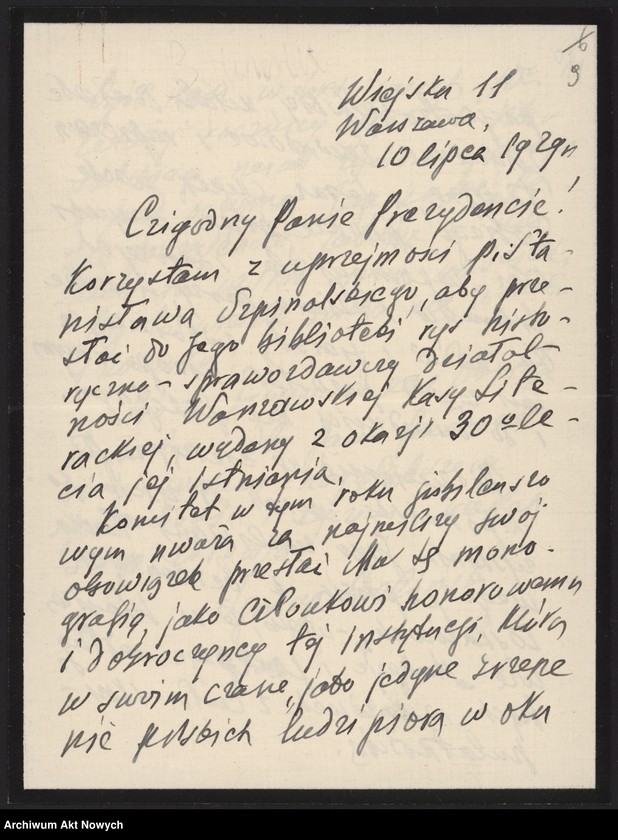 6
3
Wiejska 11
Warszawa,
10 lipca 1929 r,
Czigodny Panie Prezydencie!
Korzystam z uprzejmości p. Sta-
nisława Szpinalskiego, aby prze-
słać do Jego biblioteki rys histo-
ryczno-sprawozdawczy działal-
ności Warszawskiej Kasy Lite-
rackiej, wydany z okazji 30º le-
cia jej istnienia.
Komitet w tym roku jubileuszo
wym uważa za najmilszy swój
obowiązek przesłać Mu tę mono-
grafię, jako Członkowi honorowemu
i dobroczyńcy tej Instytucji, która
w swoim czasie, jako jedyne zrzesze
nie polskich ludzi pióra w oku
Archiwum Akt Nowych